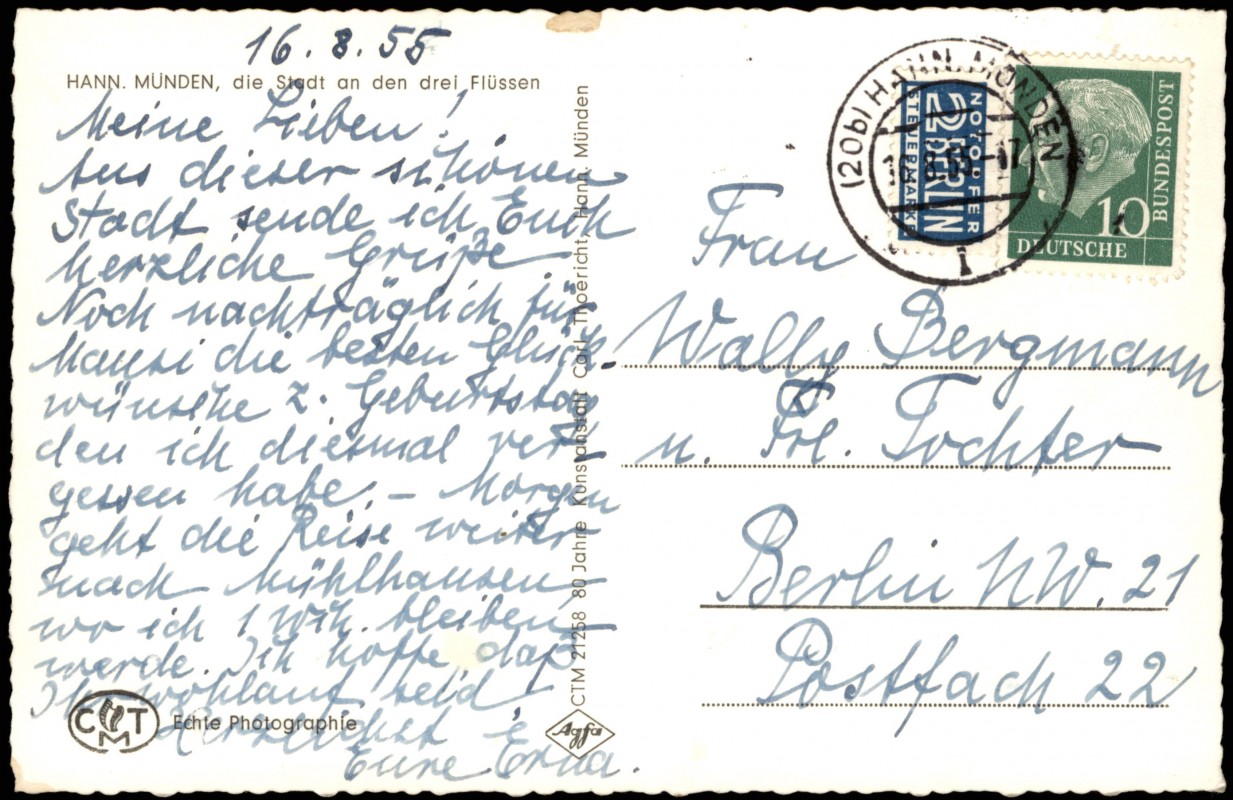 16.8.55
HANN. MÜNDEN, die Stadt an den drei Flüssen
Meine Lieben!
Aus dieser schönen
Stadt sende ich Euch
herzliche Grüße
Noch nachträglich für
Mausi die besten Glück-
wünsche z. Geburtstag
den ich diesmal ver-
gessen habe. – Morgen
geht die Reise weiter
nach Mühlhausen,
wo ich 1 Wch. bleiben
werde. Ich hoffe, daß
Ihr wohlauf seid!
Herzlichst
Eure Erna.
CMT
Echte Photographie
Agfa
CTM 21258 80 Jahre Kunstanstalt Carl Thoericht, Hann. Münden
(20b) HANN. MÜNDEN
8.55-17
1
NOTOPFER
2 BERLIN
STEUERMARKE
10
DEUTSCHE
BUNDESPOST
Frau
Wally Bergmann
u. Frl. Tochter
Berlin NW. 21
Postfach 22